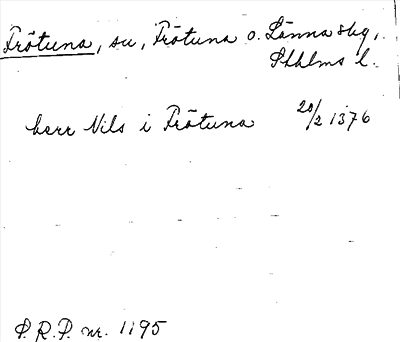 Frötuna, su, Frötuna o. Länna skg,
Sthlms l.
herr Nils i Frötuna 20/2 1376
P. R. P. nr. 1195